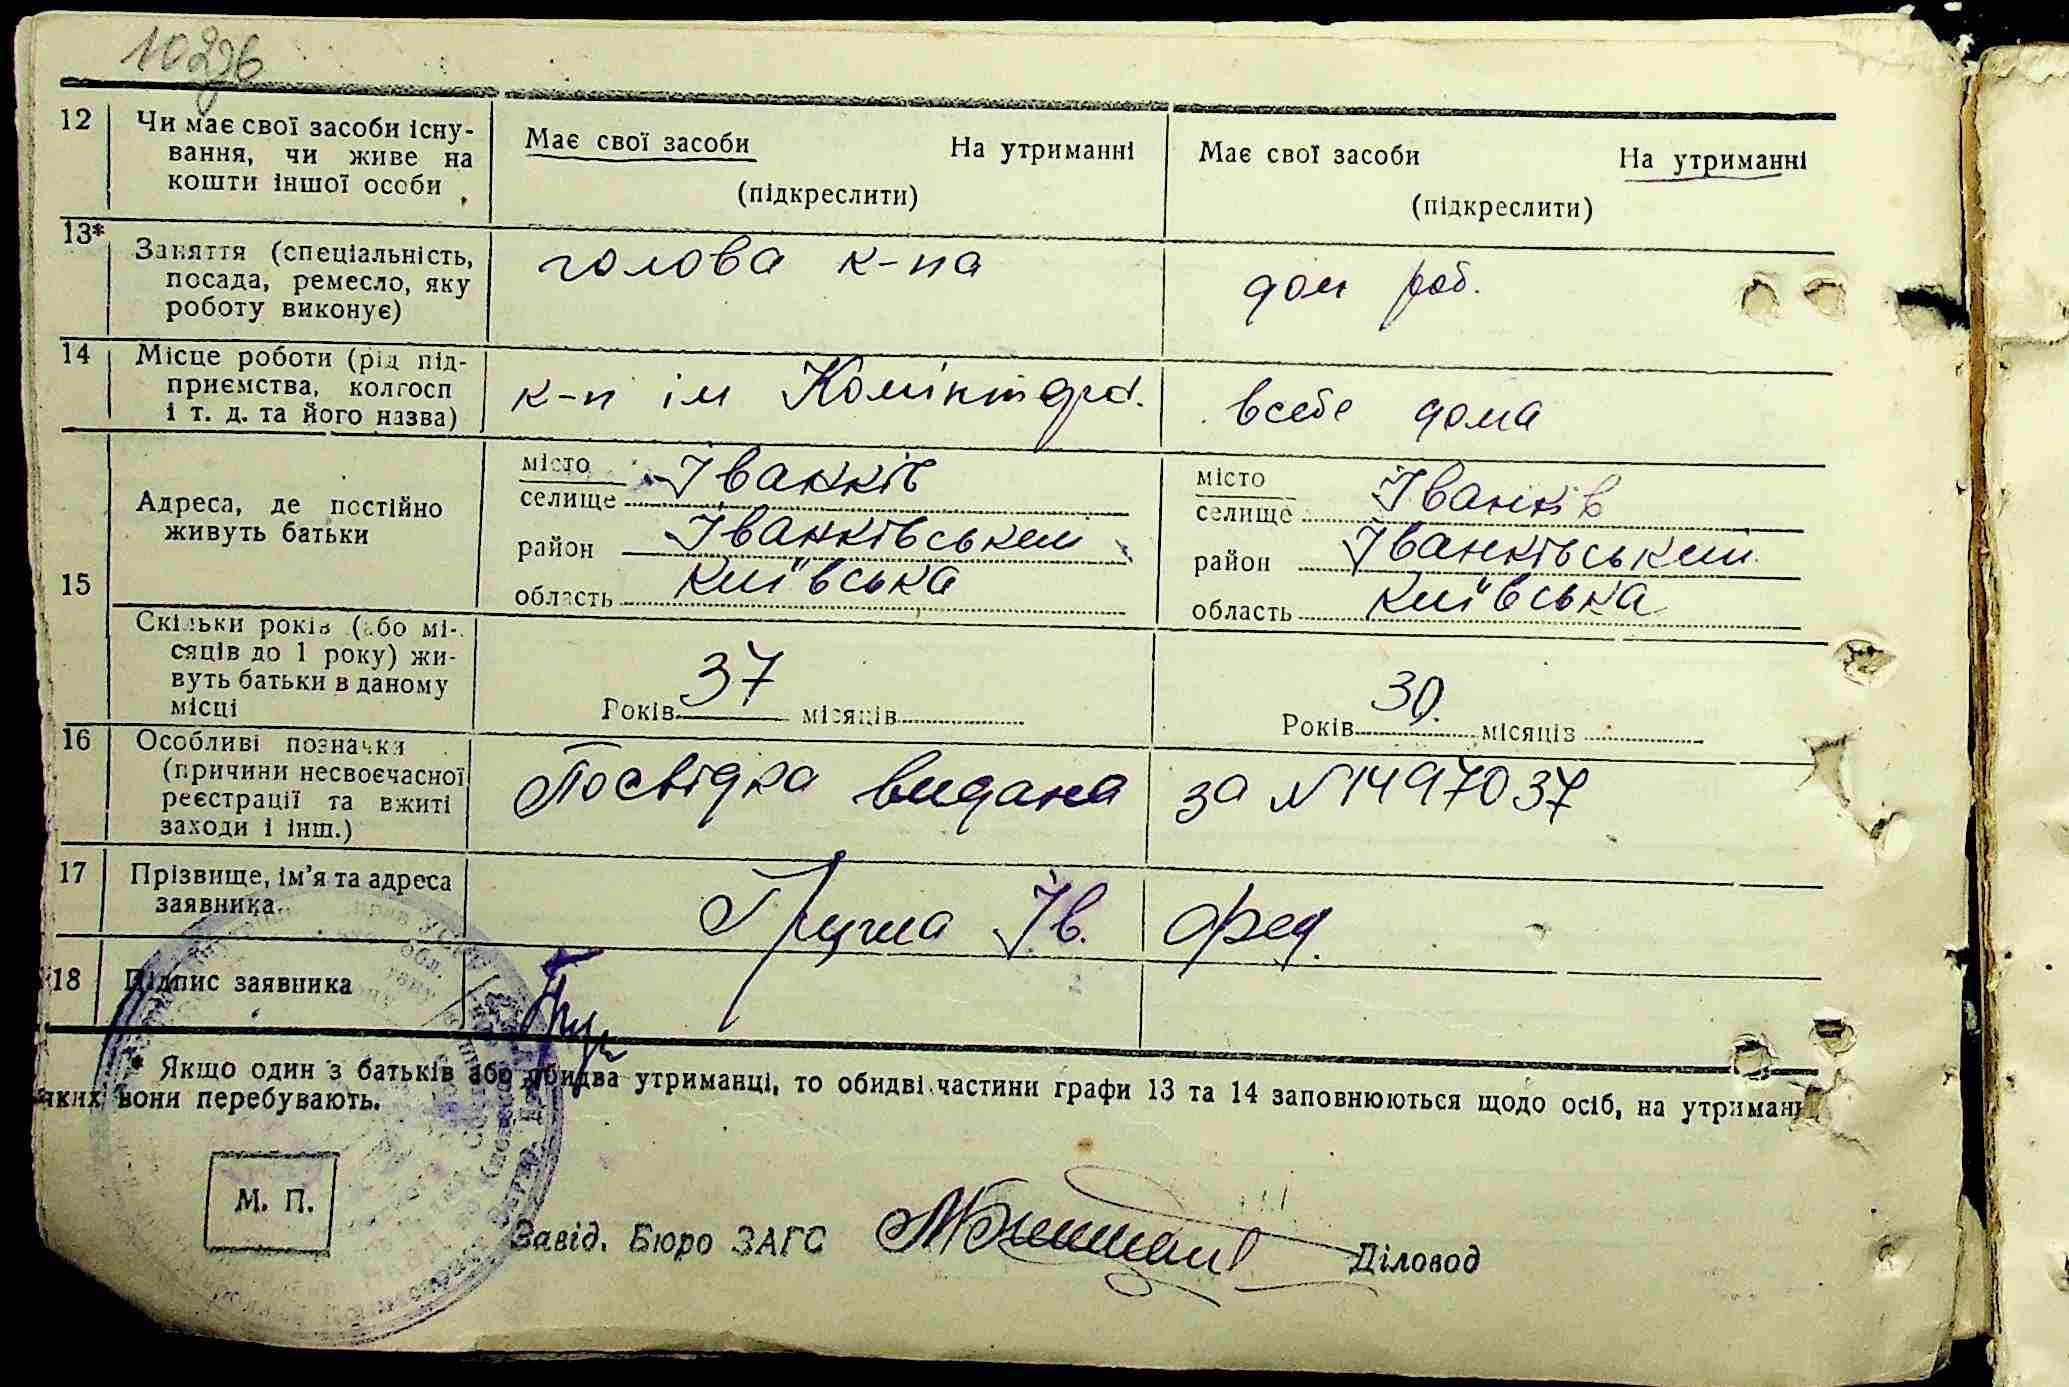 102зв
12 Чи має свої засоби існу- Має свої засоби На утриманні Має свої засоби На утриманні
вання, чи живе на
кошти іншої особи (підкреслити) (підкреслити)
13* Заняття (спеціальність, голова к-па дом роб.
посада, ремесло, яку
роботу виконує)
14 Місце роботи (рід під- к-п ім Комінтерна. всебе дома
приємства, колгосп
і т. д. та його назва)
15 Адреса, де постійно живуть батьки
місто селище Іванків місто селище Іванків
район Іванківський район Іванківський
область Київська область Київська
Скільки років (або мі-
сяців до 1 року) жи-
вуть батьки в даному
місці Років 37 місяців Років 30. місяців
16 Особливі позначки Посвідка видана за №1497037
(причини несвоєчасної
реєстрації та вжиті
заходи і інш.)
17 Прізвище, ім'я та адреса Ів. Фед.
заявника.
18 Підпис заявника
* Якщо один з батьків або обидва утриманці, то обидві частини графи 13 та 14 заповнюються щодо осіб, на утриманні
яких вони перебувають.
М. П.
Завід. Бюро ЗАГС Діловод